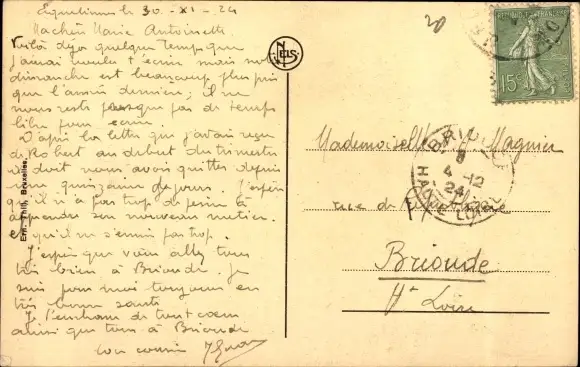 le 30-XI-24
Ma chère Marie Antoinette
Voilà déjà quelque temps que
j'aurai voulu t'écrire mais notre
dimanche est beaucoup plus pris
que l'année dernière; il ne
nous reste presque pas de temps
libre pour écrire.
D'après la lettre que j'avais reçu
de Robert au début du trimestre
il doit vous avoir quittés depuis
une quinzaine de jours. J'espère
qu'il n'a pas trop de peine à
apprendre son nouveau métier
et qu'il ne s'ennuie pas trop.
J'espère que vous allez tous
très bien à Brioude. Je
suis pour moi toujours en
très bonne santé
Je t'embrasse de tout cœur
ainsi que tous à Brioude
ton cousin
20
NELS
Ern. Thill, Bruxelles.
REPUBLIQUE FRANÇAISE
15c
BRIOUDE
4-12
24
HAUTE LOIRE
Mademoiselle Magnier
rue de
Brioude
Hte Loire